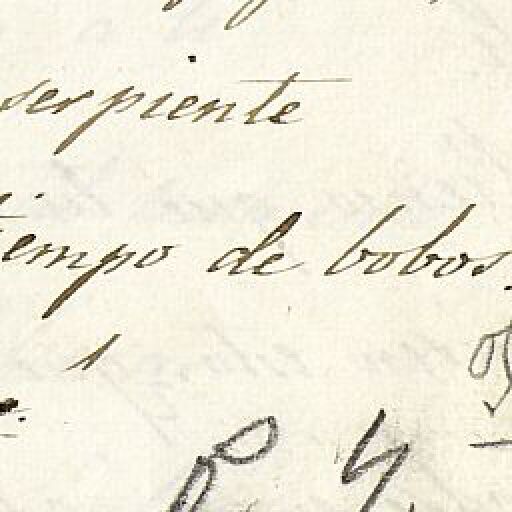 serpiente
tiempo de bobos.
1
P. Y.